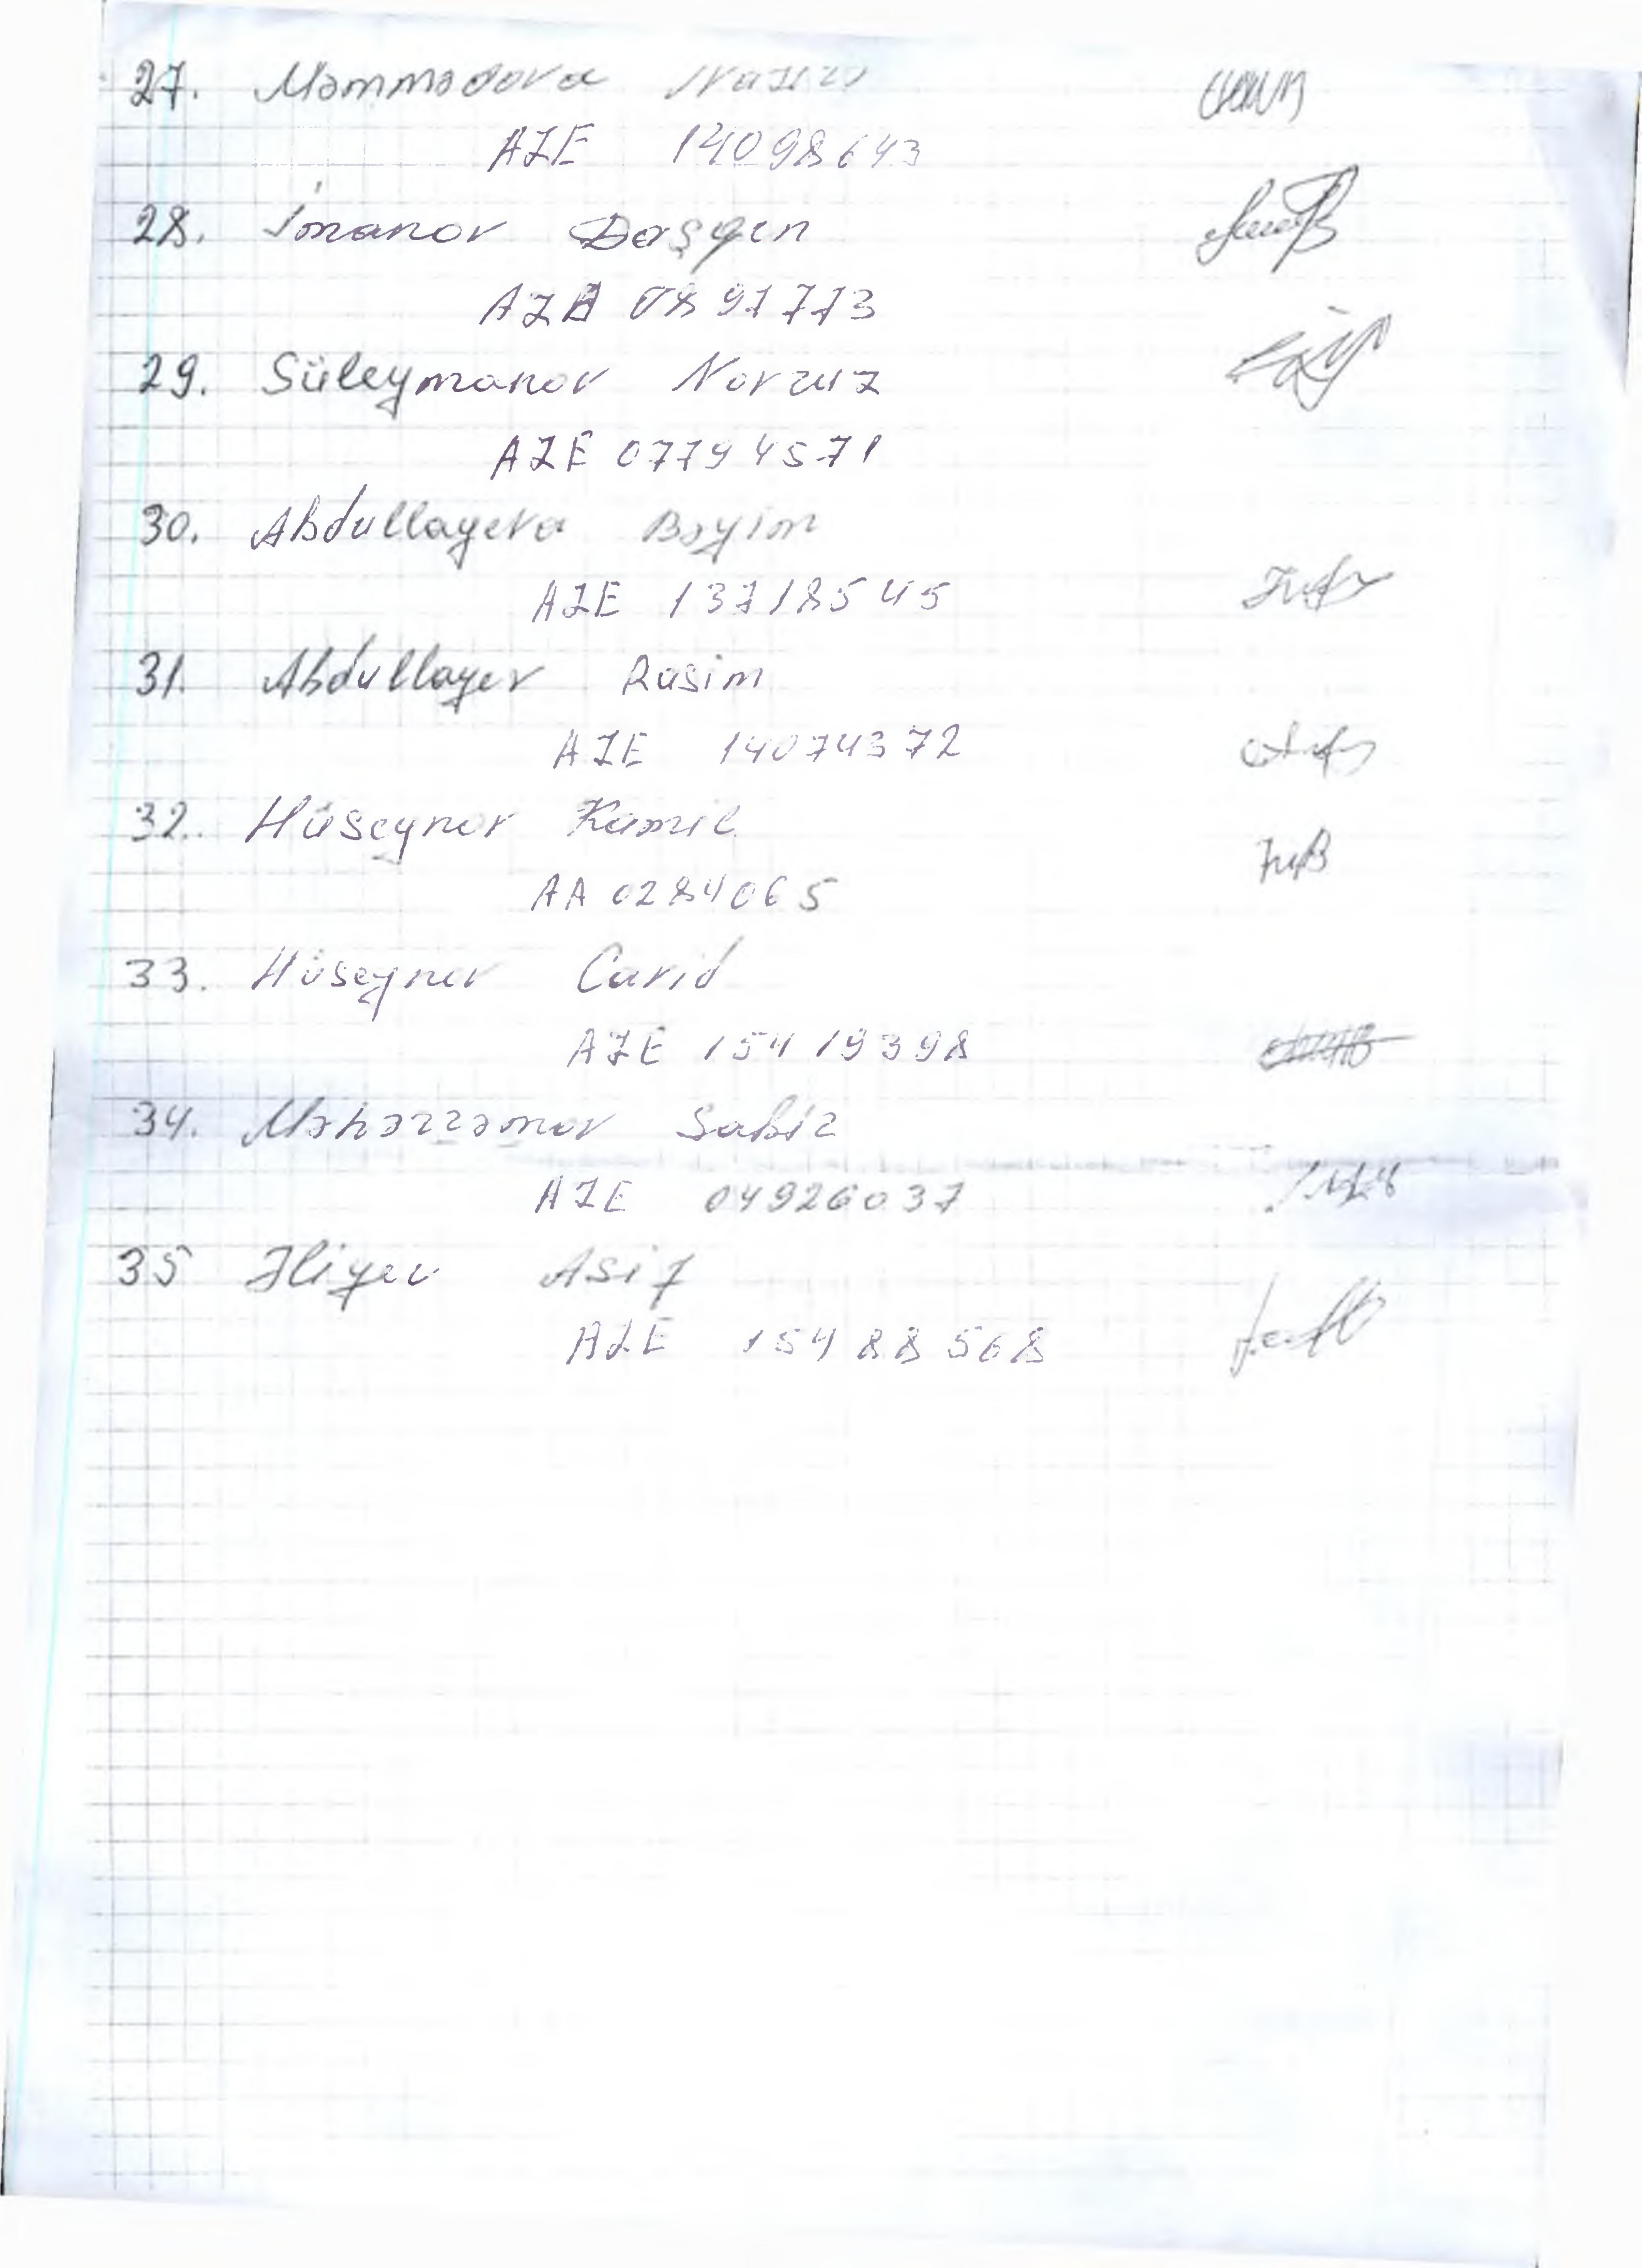 27. Məmmədova
AZE 14098643
28. İmanov Daşqın
AZE 0897773
29. Süleymanov Novruz
AZE 07794571
30. Abdullayeva Bəyim
AZE 13718545
31. Abdullayev Rasim
AZE 14074372
32. Hüseynov Kamil
AA 0284065
33. Hüseynov Cavid
AZE 15419398
34. Məhərrəmov Sabir
AZE 04926037
35 Əliyev Asif
AZE 15488568